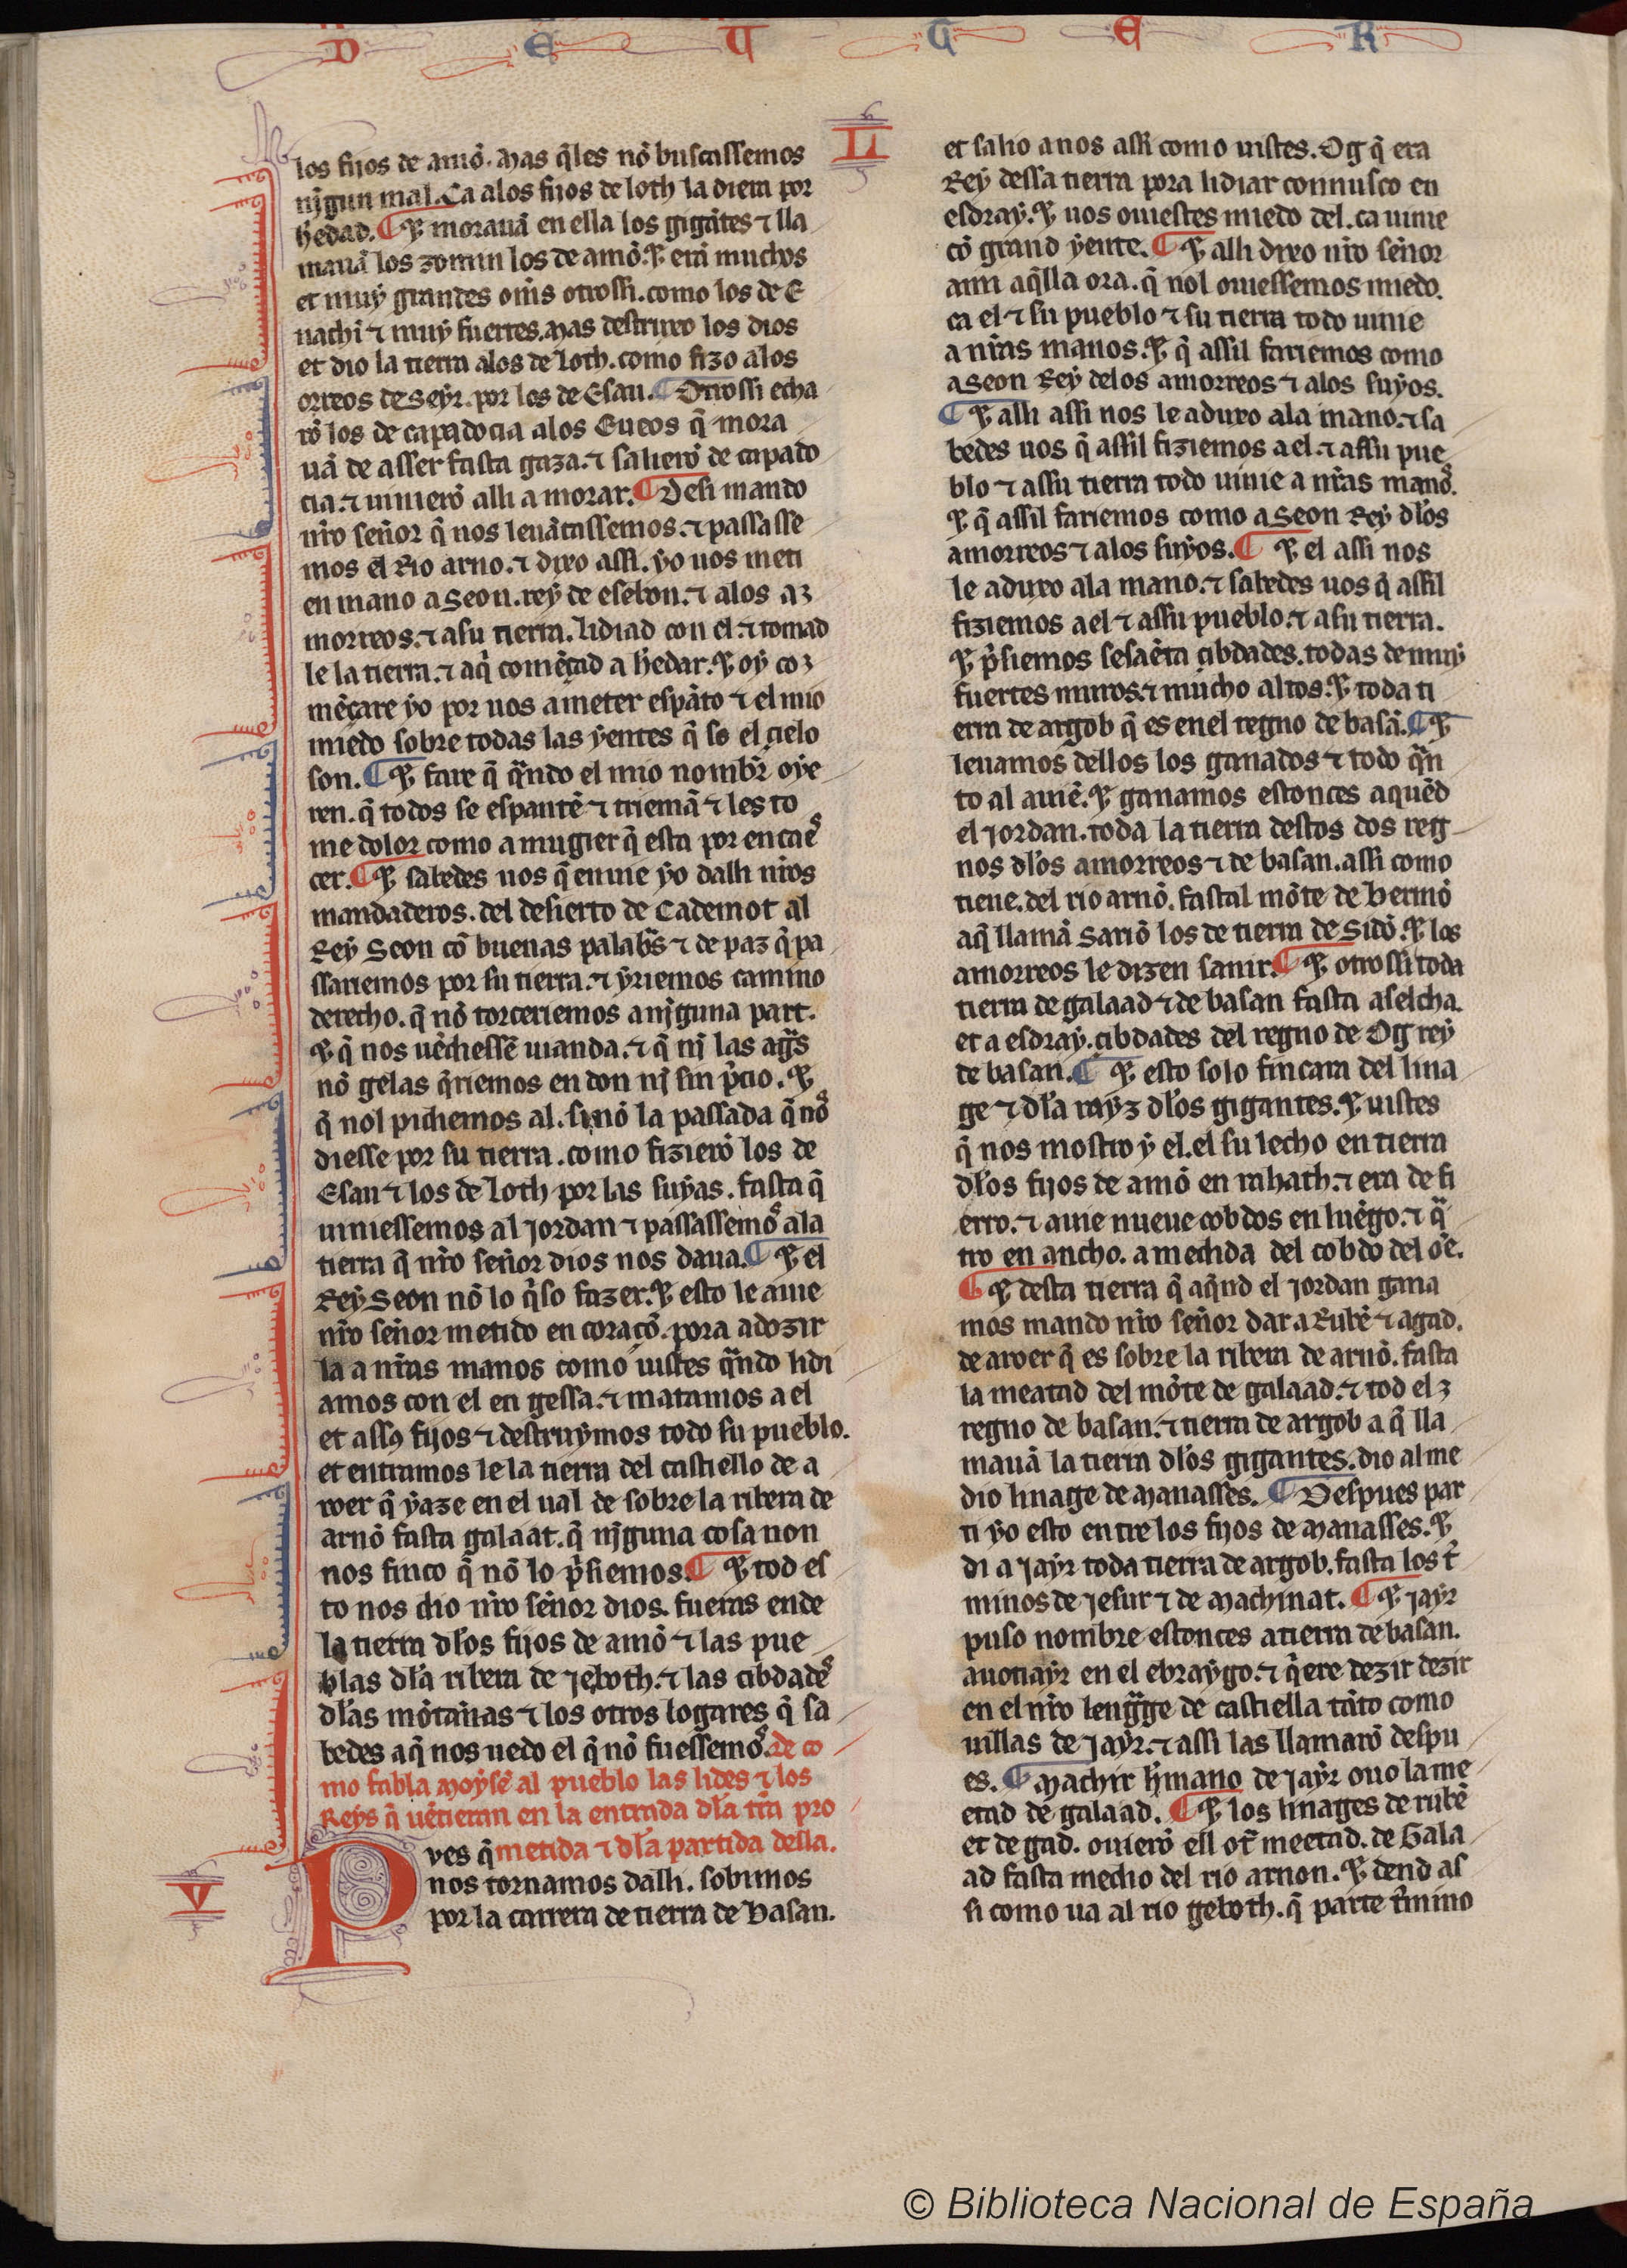 D E U G E R
L
los fijos de amō. Mas q̄les nō buscassemos
nīgun mal. Ca alos fijos de loth la diera por
h̄edad. ¶ ⁊ morauā en ella los gigātes ⁊ lla
mauā los zomin los de amō. ⁊ erā muchos
et muy grandes om̄s otrossi. como los de E
nachī ⁊ muy fuertes. Mas destruxo los dios
et dio la tierra alos de loth. como fizo alos
orreos de Seyr. por los de Esau. ¶ Otrossi echa
rō los de capadocia alos Eueos q̄ mora
uā de asser fasta gaza. ⁊ salierō de capado
cia. ⁊ uinierō alli a morar. ¶ Desi mando
nr̄o señor q̄ nos leuātassemos. ⁊ passasse
mos el Rio arno. ⁊ dixo assi. yo uos meti
en mano a Seon. rey de esebon. ⁊ alos az
morreos. ⁊ asu tierra. lidiad con el. ⁊ tomad
le la tierra. ⁊ aq̄ comēçad a h̄edar. ⁊ oy coz
mēçare yo por uos a meter espāto ⁊ el mio
miedo sobre todas las yentes q̄ so el cielo
son. ¶ ⁊ fare q̄ q̄ndo el mio nombr̄ oye
ren. q̄ todos se espantē ⁊ triemā ⁊ les to
me dolor como a mugier q̄ esta por encaes
cer. ¶ ⁊ sabedes uos q̄ enuie yo dalli nr̄os
mandaderos. del desierto de Cademot al
Rey Seon cō buenas palabr̄s ⁊ de paz q̄ pa
ssariemos por su tierra. ⁊ yriemos camino
derecho. q̄ nō torceriemos a nīguna part.
⁊ q̄ nos uēdiessē uianda. ⁊ q̄ nī las agūs
nō gelas q̄riemos en don nī sin p̄cio. ⁊
q̄ nol pidiemos al. sinō la passada q̄ nos
diesse por su tierra. como fizierō los de
Esau ⁊ los de loth por las suyas. fasta q̄
uiniessemos al jordan ⁊ passassemos ala
tierra q̄ nr̄o señor dios nos daua. ¶ ⁊ el
Rey Seon nō lo q̄so fazer. ⁊ esto le auie
nr̄o señor metido en coraçō. pora adozir
la a nr̄as manos como uistes q̄ndo lidi
amos con el en gessa. ⁊ matamos a el
et assꝯ fijos ⁊ destruymos todo su pueblo.
et entramos le la tierra del castiello de a
roer q̄ yaze en el ual de sobre la ribera de
arnō fasta galaat. q̄ nīguna cosa non
nos finco q̄ nō lo p̄siemos. ¶ ⁊ tod es
to nos dio nr̄o señor dios. fueras ende
la tierra dl̄os fijos de amō ⁊ las pue
blas dl̄a ribera de jeboth. ⁊ las cibdades
dl̄as mōtañas ⁊ los otros logares q̄ sa
bedes aq̄ nos uedo el q̄ nō fuessemos. de co
mo fabla moysē al pueblo las lides ⁊ los
Reys q̄ uēcieran en la entrada dl̄a tr̄a pro
V
Pves q̄ metida ⁊ dl̄a partida della.
nos tornamos dalli. sobimos
por la carrera de tierra de Basan.
et salio a nos assi como uistes. Og q̄ era
Rey dessa tierra pora lidiar connusco en
esdray. ⁊ uos ouiestes miedo del. ca uinie
cō grand yente. ¶ ⁊ alli dixo nr̄o señor
ami aq̄lla ora. q̄ nol ouiessemos miedo.
ca el ⁊ su pueblo ⁊ su tierra todo uinie
a nr̄as manos. ⁊ q̄ assil fariemos como
a Seon Rey delos amorreos ⁊ alos suyos.
¶ ⁊ alli assi nos le aduxo ala mano. ⁊ sa
bedes uos q̄ assil fiziemos a el. ⁊ assu pue
blo ⁊ assu tierra todo uinie a nr̄as manos.
⁊ q̄ assil fariemos como a Seon Rey dl̄os
amorreos ⁊ alos suyos. ¶ ⁊ el assi nos
le aduxo ala mano. ⁊ sabedes uos q̄ assil
fiziemos a el ⁊ assu pueblo. ⁊ asu tierra.
⁊ p̄siemos sesaēta cibdades. todas de muy
fuertes muros. ⁊ mucho altos. ⁊ toda ti
erra de argob q̄ es en el regno de basā. ¶ ⁊
leuamos dellos los ganados ⁊ todo q̄n
to al auiē. ⁊ ganamos estonces aquēd
el jordan. toda la tierra destos dos reg
nos dl̄os amorreos ⁊ de basan. assi como
tiene. del rio arnō. fastal mōte de hermō
aq̄ llamā Sariō los de tierra de Sidō. ⁊ los
amorreos le dizen sanir. ¶ ⁊ otrossi toda
tierra de galaad ⁊ de basan fasta aselcha.
et a esdray. cibdades del regno de Og rey
de basan. ¶ ⁊ esto solo fincara del lina
ge ⁊ dl̄a rayz dl̄os gigantes. ⁊ uistes
q̄ nos mostro y el. el su lecho en tierra
dl̄os fijos de amō en rabath. ⁊ era de fi
erro. ⁊ auie nueue cobdos en luēgo. ⁊ q̄
tro en ancho. a medida del cobdo del oē.
¶ ⁊ desta tierra q̄ aq̄nd el jordan gana
mos mando nr̄o señor dar a Rubē ⁊ agad.
de aroer q̄ es sobre la ribera de arnō. fasta
la meatad del mōte de galaad. ⁊ tod elz
regno de basan. ⁊ tierra de argob a q̄ lla
mauā la tierra dl̄os gigantes. dio al me
dio linage de Manasses. ¶ Despues par
ti yo esto entre los fijos de Manasses. ⁊
di a Jayr toda tierra de argob. fasta los t̄r
minos de Jesur ⁊ de Machinat. ¶ ⁊ Jayr
puso nombre estonces atierra de basan.
auotiayr en el ebraygo. ⁊ q̄ere dezir dezir
en el nr̄o lengūge de castiella tāto como
uillas de Jayr. ⁊ assi las llamarō despu
es. ¶ Machir h̄mano de Jayr ouo la me
etad de galaad. ¶ ⁊ los linages de rubē
et de gad. ouierō ell ot̄ meetad. de Gala
ad fasta medio del rio arnon. ⁊ dend as
si como ua al rio geboth. q̄ parte t̄mino
© Biblioteca Nacional de España